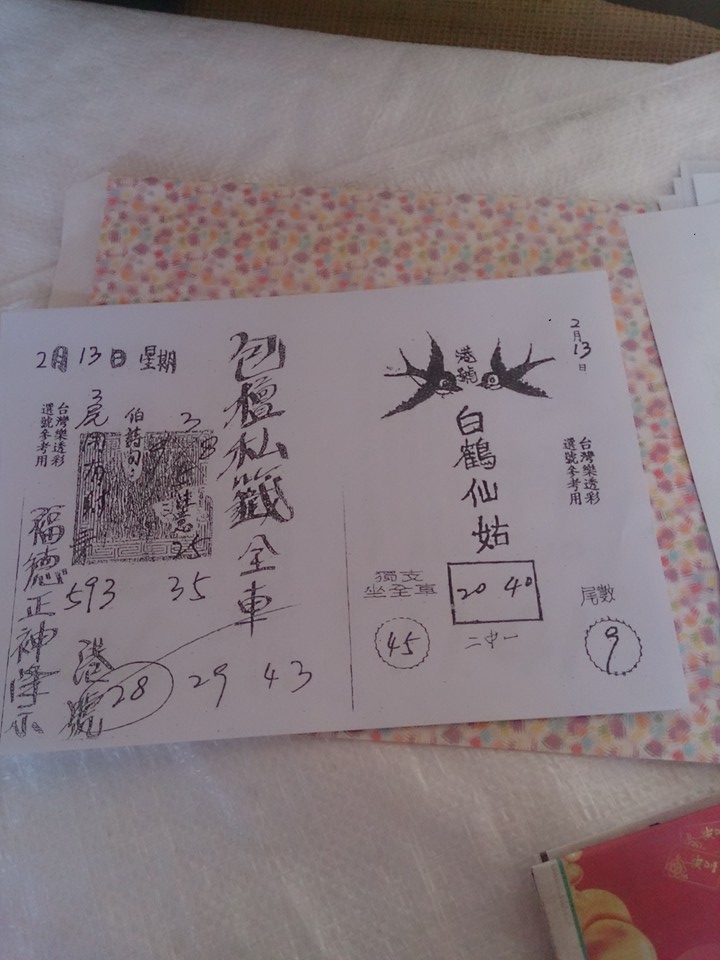 2月13日 星期
包壇仙籤全車
台灣樂透彩
選號參考用
3
伯詩句:
注意
25
593
35
福德正神降示
港號
28 29 43
2月13日
港號
白鶴仙姑
台灣樂透彩
選號參考用
獨支
坐全車
20 40
尾數
45
二中一
9